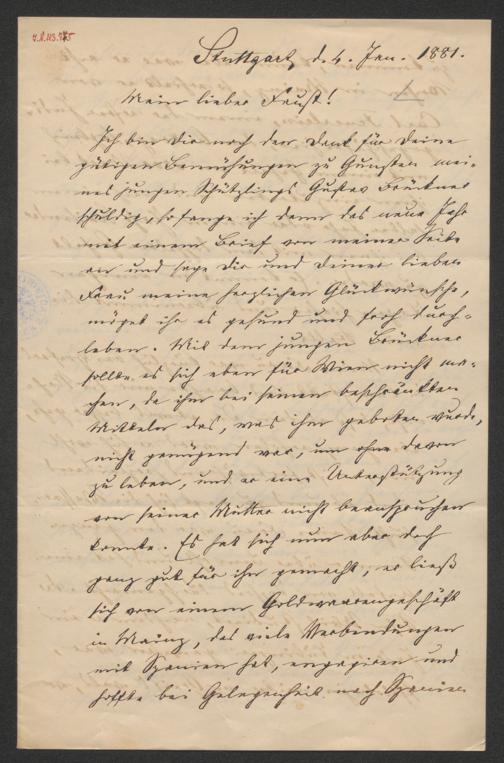 J.N. 113.975
Stuttgart, d. 4. Jan. 1881.
Mein lieber Faust!
Ich bin Dir noch den Dank für Deine
gütigen Bemühungen zu Gunsten mei-
nes jungen Schützlings Gustav Brückner
schuldig, so fange ich denn das neue Jahr
mit einem Brief von meiner Seite
an und sage Dir und Deiner lieben
Frau meine herzlichen Glückwünsche,
möget ihr es gesund und froh durch-
leben. Mit dem jungen Brückner
sollte es sich eben für Wien nicht ma-
chen, da ihm bei seinen beschränkten
Mitteln das, was ihm geboten wurde,
nicht genügend war, um ohne davon
zu leben, und er eine Unterstützung
von seiner Mutter nicht beanspruchen
konnte. Es hat sich nun aber doch
ganz gut für ihn gemacht, er ließ
sich von einem Goldwaarengeschäft
in Mainz, das viele Verbindungen
mit Spanien hat, engagiren und
hofft bei Gelegenheit nach Spanien